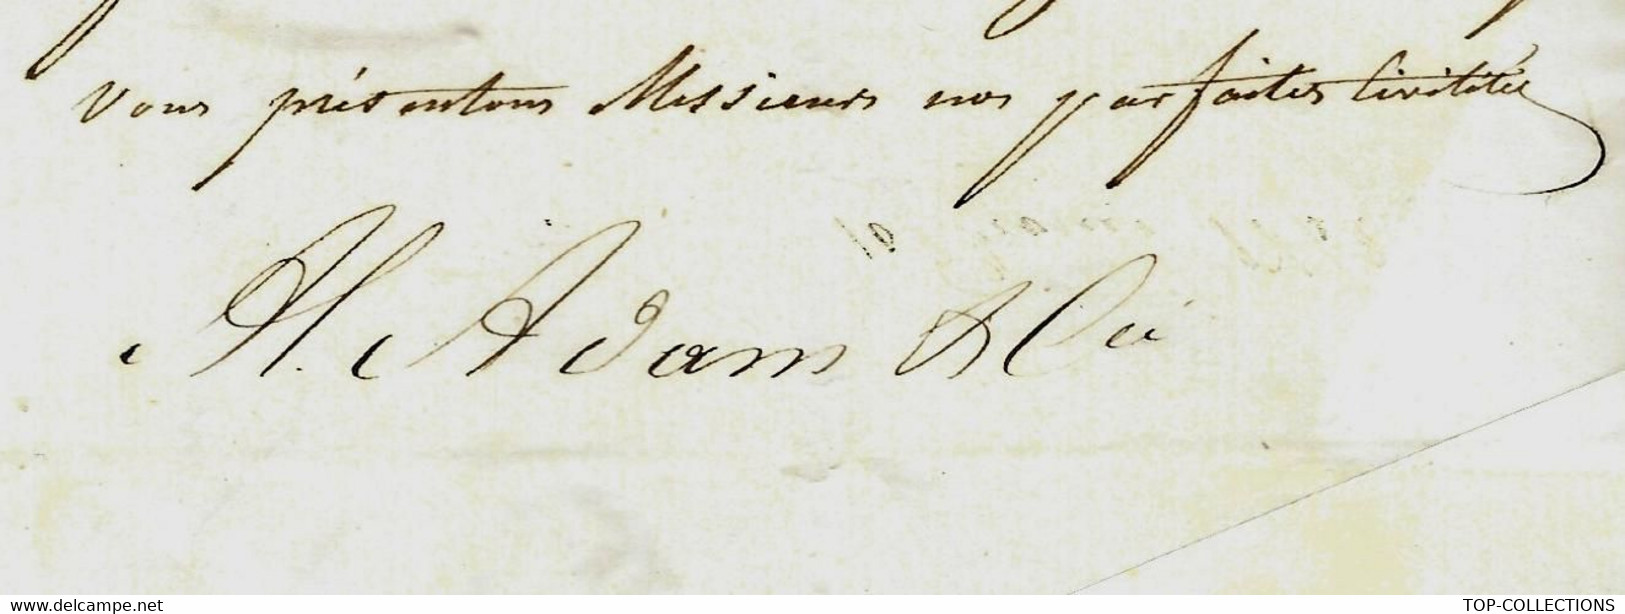 vous présentons Messieurs nos parfaites Civilités
H. Adam & Cie
www.delcampe.net
TOP-COLLECTIONS